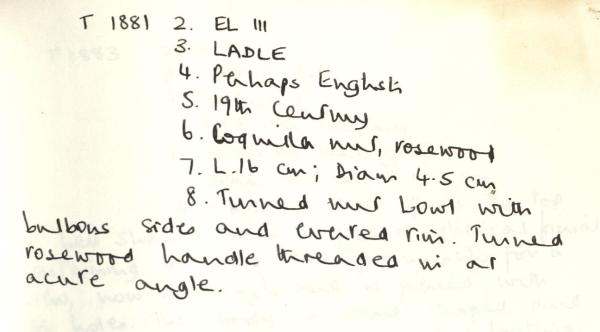 T 1881 2. EL III
3. LADLE
4. Perhaps English
5. 19th Century
6. Coquilla nut, rosewood
7. L.16 cm; Diam 4.5 cm
8. Turned nut bowl with
bulbous sides and everted rim. Turned
rosewood handle threaded in at
acute angle.